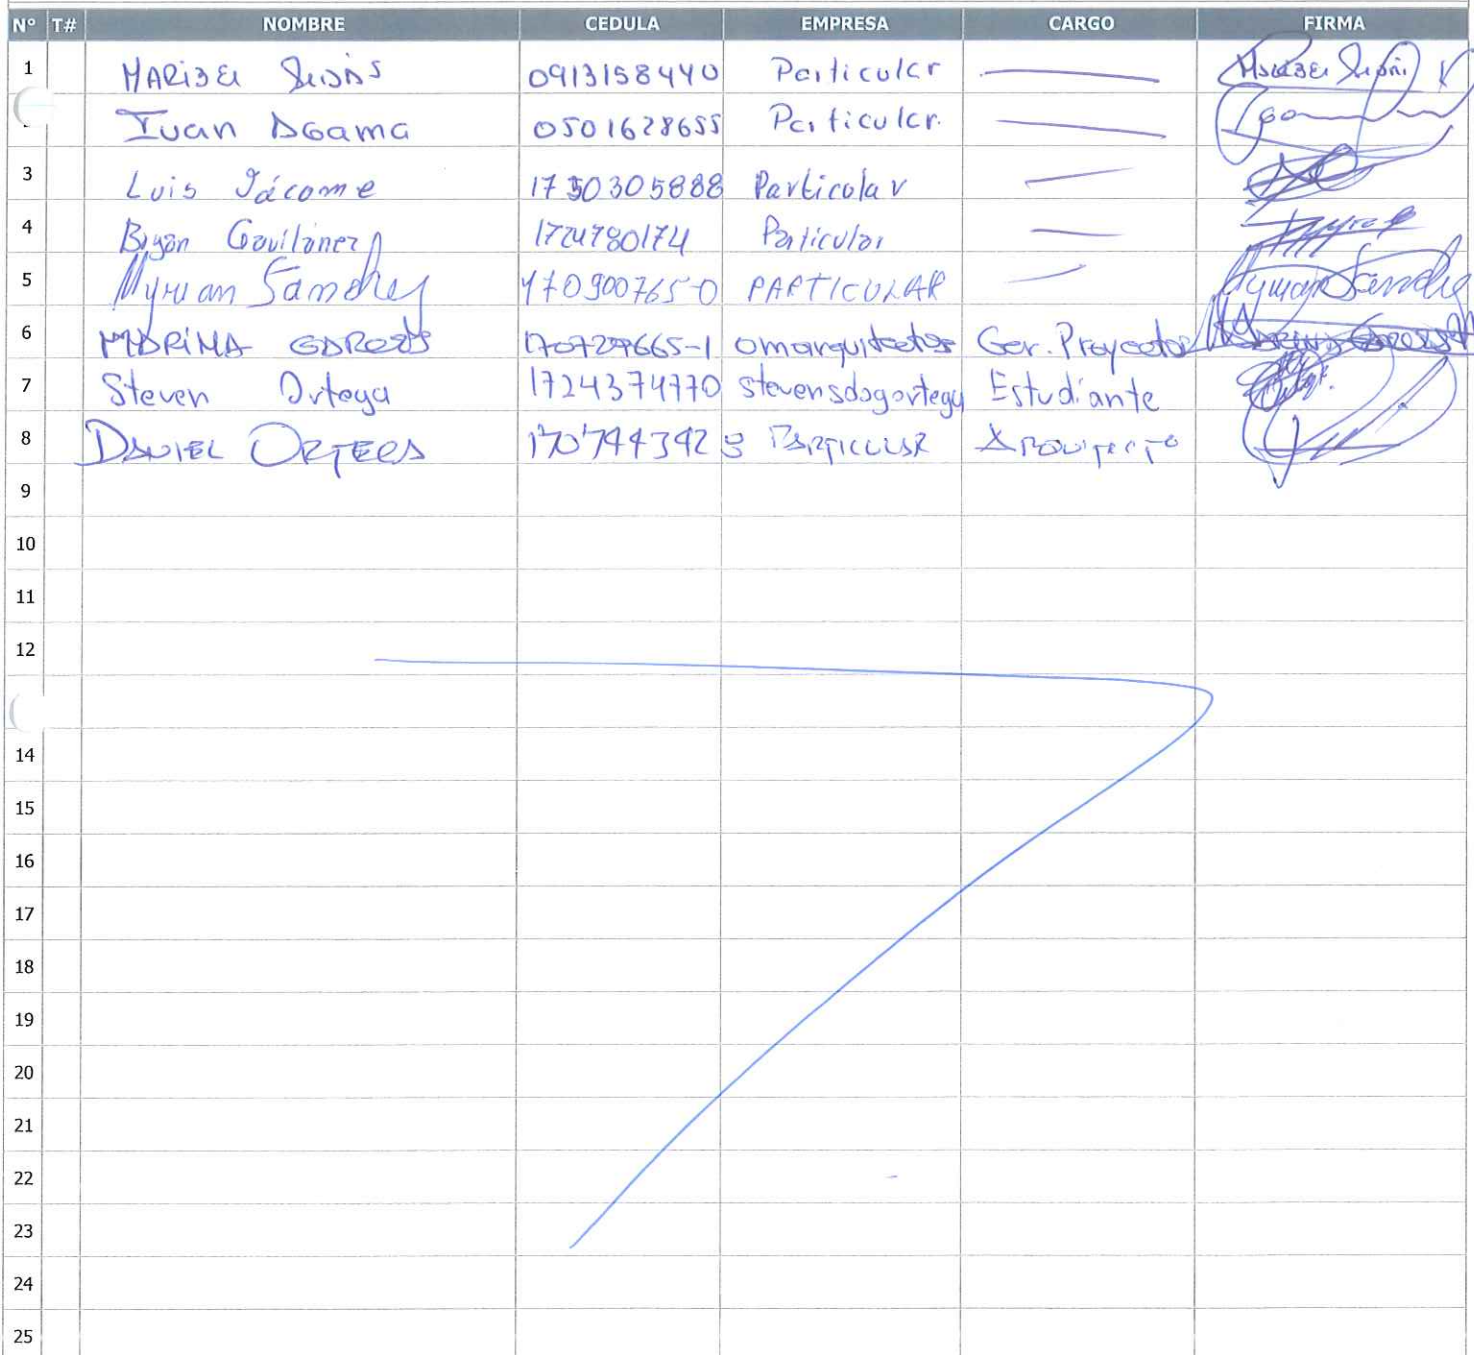 N° T# NOMBRE CEDULA EMPRESA CARGO FIRMA
1 MARISEl 0913158440 Particular
Ivan 0501628655 Particular.
3 Luis Jácome 1750305888 Particular
4 Bryan Gavilanez 1724780174 Particular
5 Myrian Sanchez 170900765-0 PARTICULAR Myrian Sanchez
6 MARINA GARCES 170729665-1 omarquitectos Ger. Proyectos
7 Steven Ortega 1724374770 stevensdagortega Estudiante
8 DANIEL ORTEGA 170744342 PARTICULAR ARQUITECTO
9
10
11
12
14
15
16
17
18
19
20
21
22
23
24
25